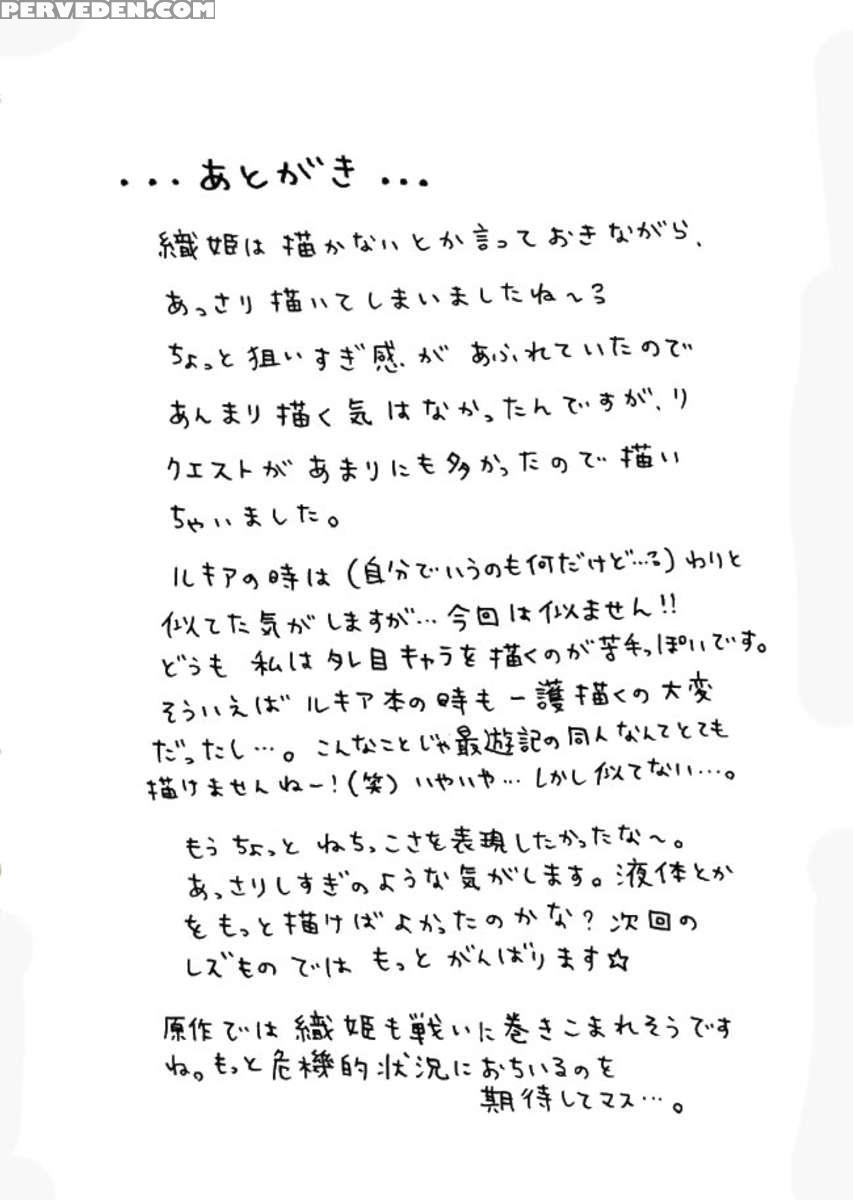 PERVEDEN.COM
...あとがき...
織姫は描かないとか言っておきながら、
あっさり描いてしまいましたね〜
ちょっと狙いすぎ感があふれていたので
あんまり描く気はなかったんですが、リ
クエストがあまりにも多かったので描い
ちゃいました。
ルキアの時は(自分でいうのも何だけど…)わりと
似てた気がしますが…今回は似ません!!
どうも私はタレ目キャラを描くのが苦手っぽいです。
そういえばルキア本の時も一護描くの大変
だったし…。こんなことじゃ最遊記の同人なんてとても
描けませんねー!(笑)いやいや…しかし似てない…。
もうちょっとねちっこさを表現したかったな〜。
あっさりしすぎのような気がします。液体とか
をもっと描けばよかったのかな?次回の
レズものではもっとがんばります☆
原作では織姫も戦いに巻きこまれそうです
ね。もっと危機的状況におちいるのを
期待してマス…。